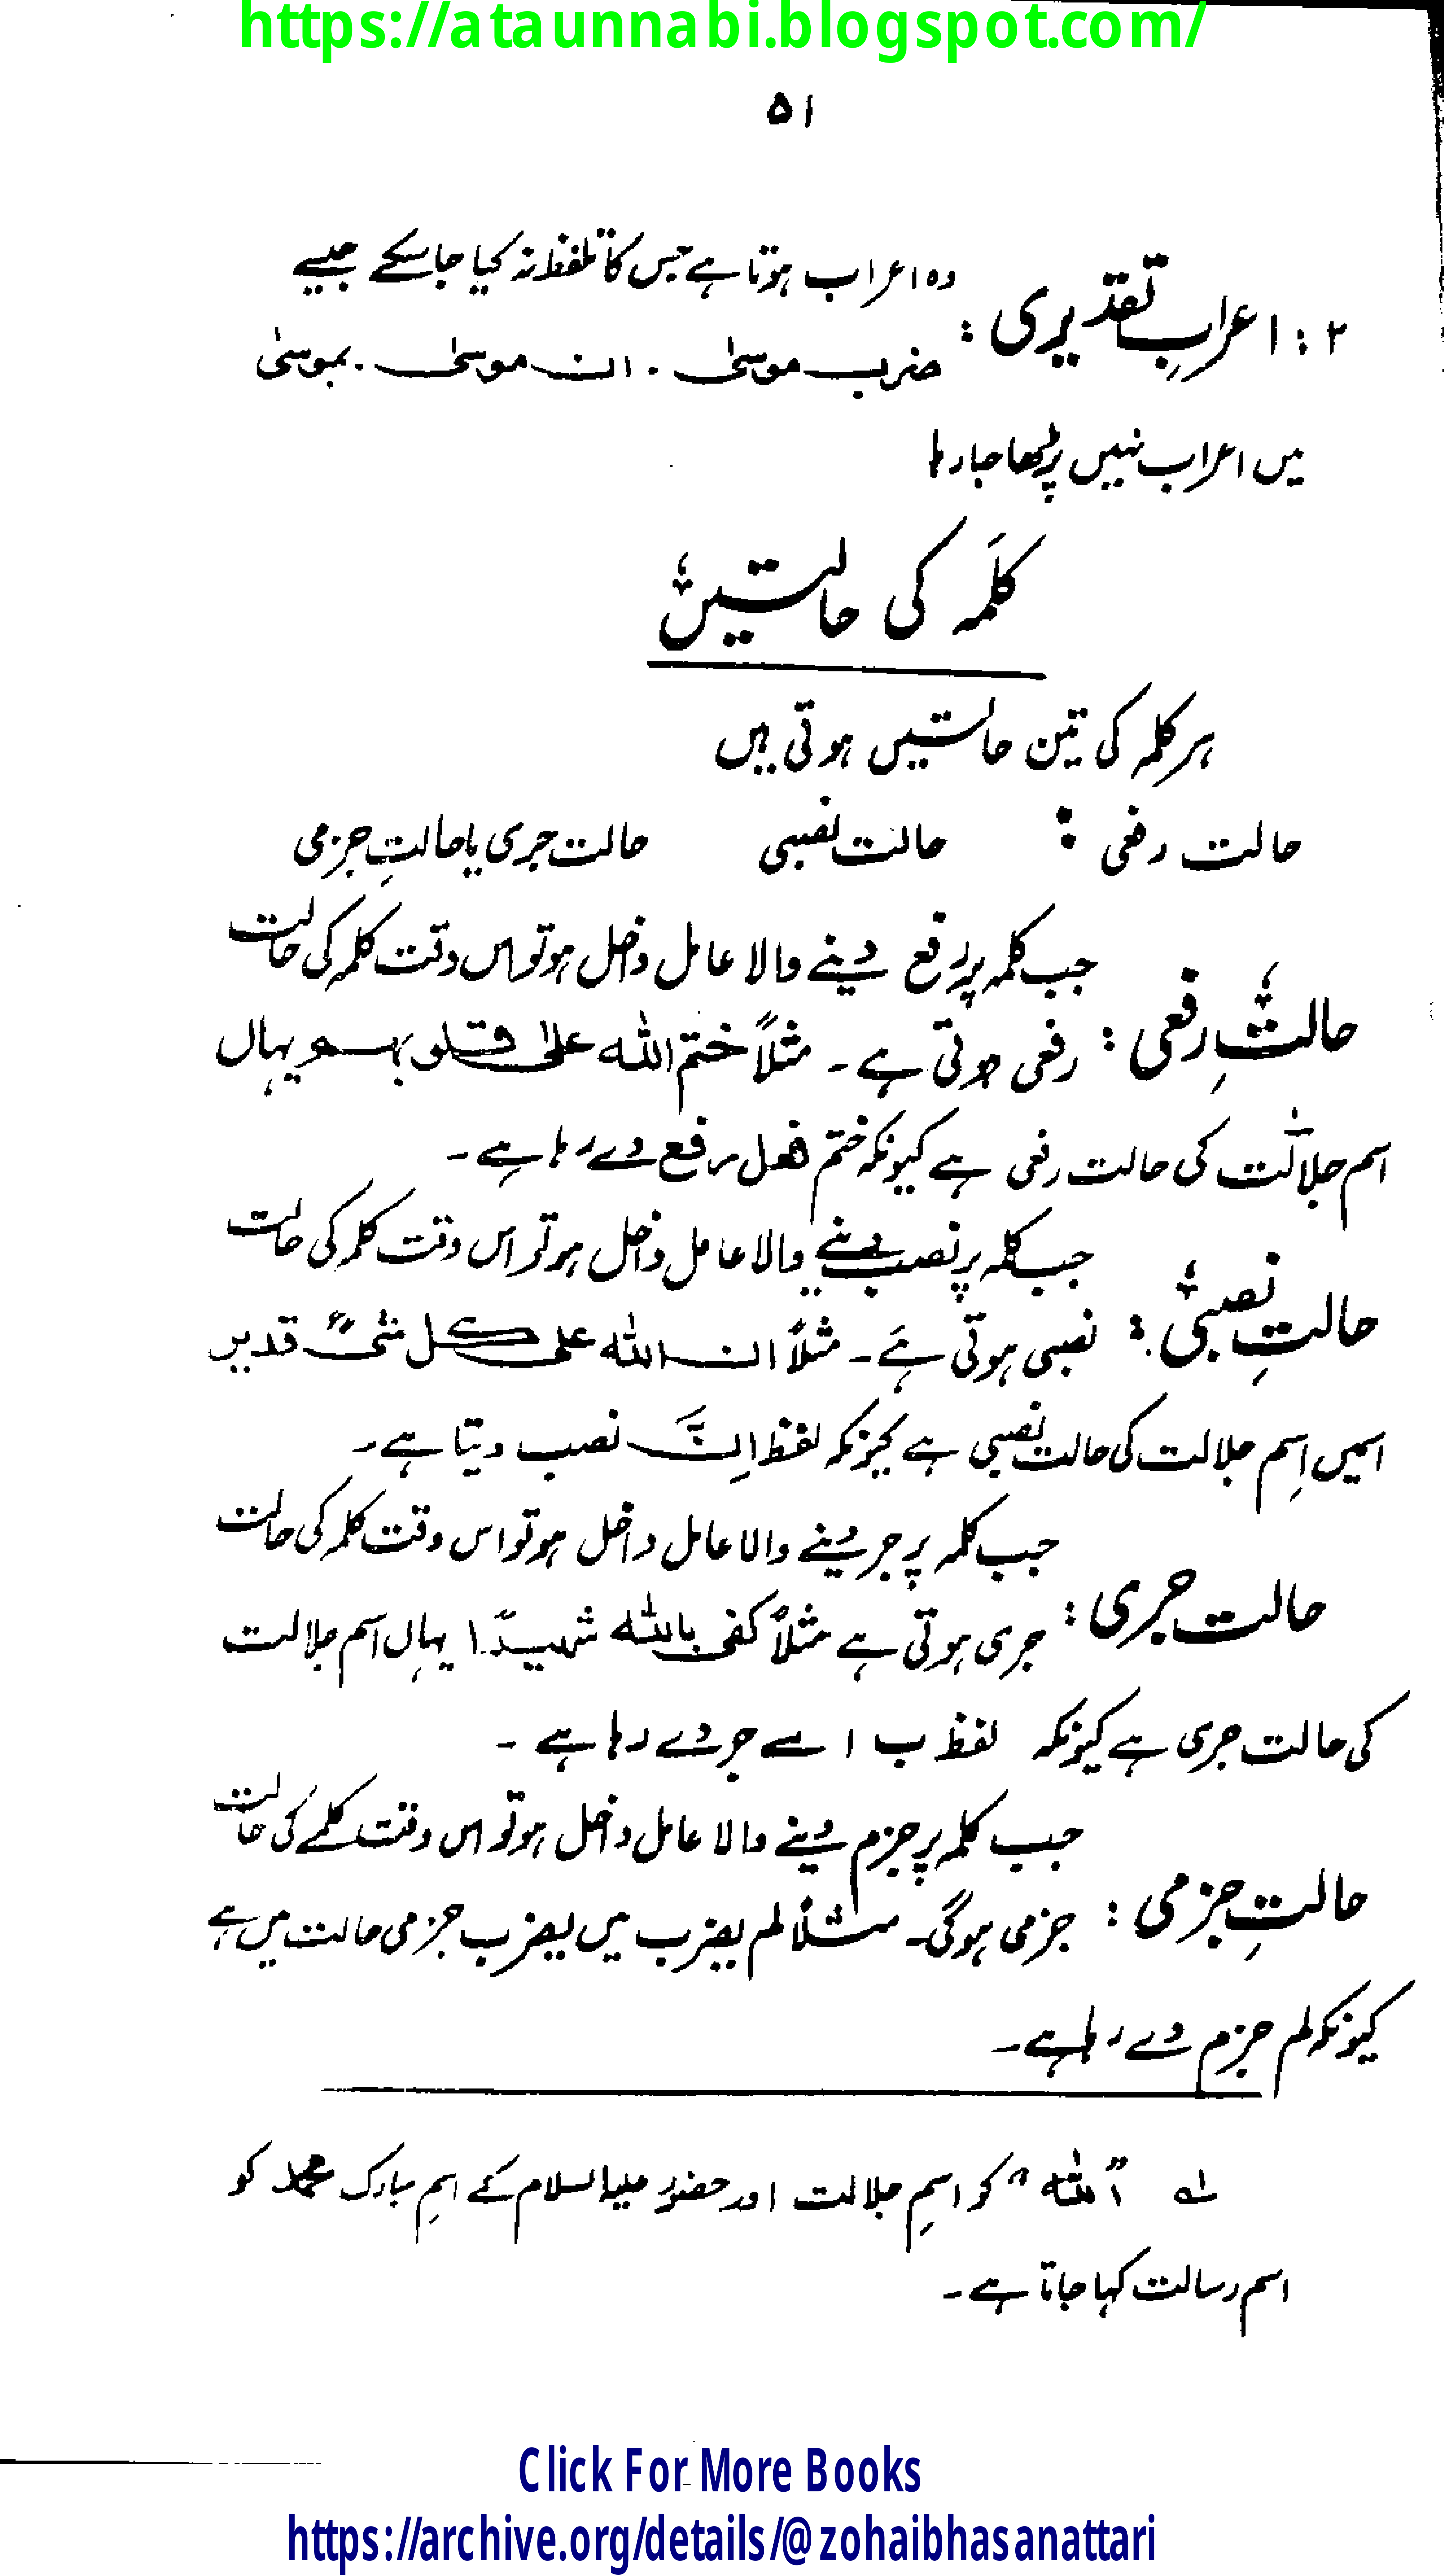 https://ataunnabi.blogspot.com/
۵۱
۲ : اعرابِ تقدیری : وہ اعراب ہوتا ہے جس کا تلفظ نہ کیا جا سکے جیسے
ضرب موسیٰ . ان موسیٰ . بموسیٰ
میں اعراب نہیں پڑھا جا رہا
کلمہ کی حالتیں
ہر کلمہ کی تین حالتیں ہوتی ہیں
حالت رفعی : حالت نصبی حالت جری یا حالتِ جزمی
حالتِ رفعی : جب کلمہ پر رفع دینے والا عامل داخل ہو تو اس وقت کلمہ کی حالت
رفعی ہوتی ہے ۔ مثلاً ختم اللہ علیٰ قلوبہم یہاں
اسم جلالت کی حالت رفعی ہے کیونکہ ختم فعل رفع دے رہا ہے ۔
حالتِ نصبی : جب کلمہ پر نصب دینے والا عامل داخل ہو تو اس وقت کلمہ کی حالت
نصبی ہوتی ہے ۔ مثلاً ان اللہ علی کل شئ قدیر
اسمیں اِسم جلالت کی حالت نصبی ہے کیونکہ لفظ اِنَّ نصب دیتا ہے ۔
حالت جری : جب کلمہ پر جر دینے والا عامل داخل ہو تو اس وقت کلمہ کی حالت
جری ہوتی ہے مثلاً کفی باللہ شہیدًا یہاں اسم جلالت
کی حالت جری ہے کیونکہ لفظ ب اسے جر دے رہا ہے ۔
حالتِ جزمی : جب کلمہ پر جزم دینے والا عامل داخل ہو تو اس وقت کلمے کی حالت
جزمی ہوگی ۔ مثلاً لم یضرب میں یضرب جزمی حالت میں ہے
کیونکہ لم جزم دے رہا ہے ۔
؎۱ "اللہ" کو اسمِ جلالت اور حضور علیہ السلام کے اسمِ مبارک محمد کو
اسم رسالت کہا جاتا ہے ۔
Click For More Books
https://archive.org/details/@zohaibhasanattari